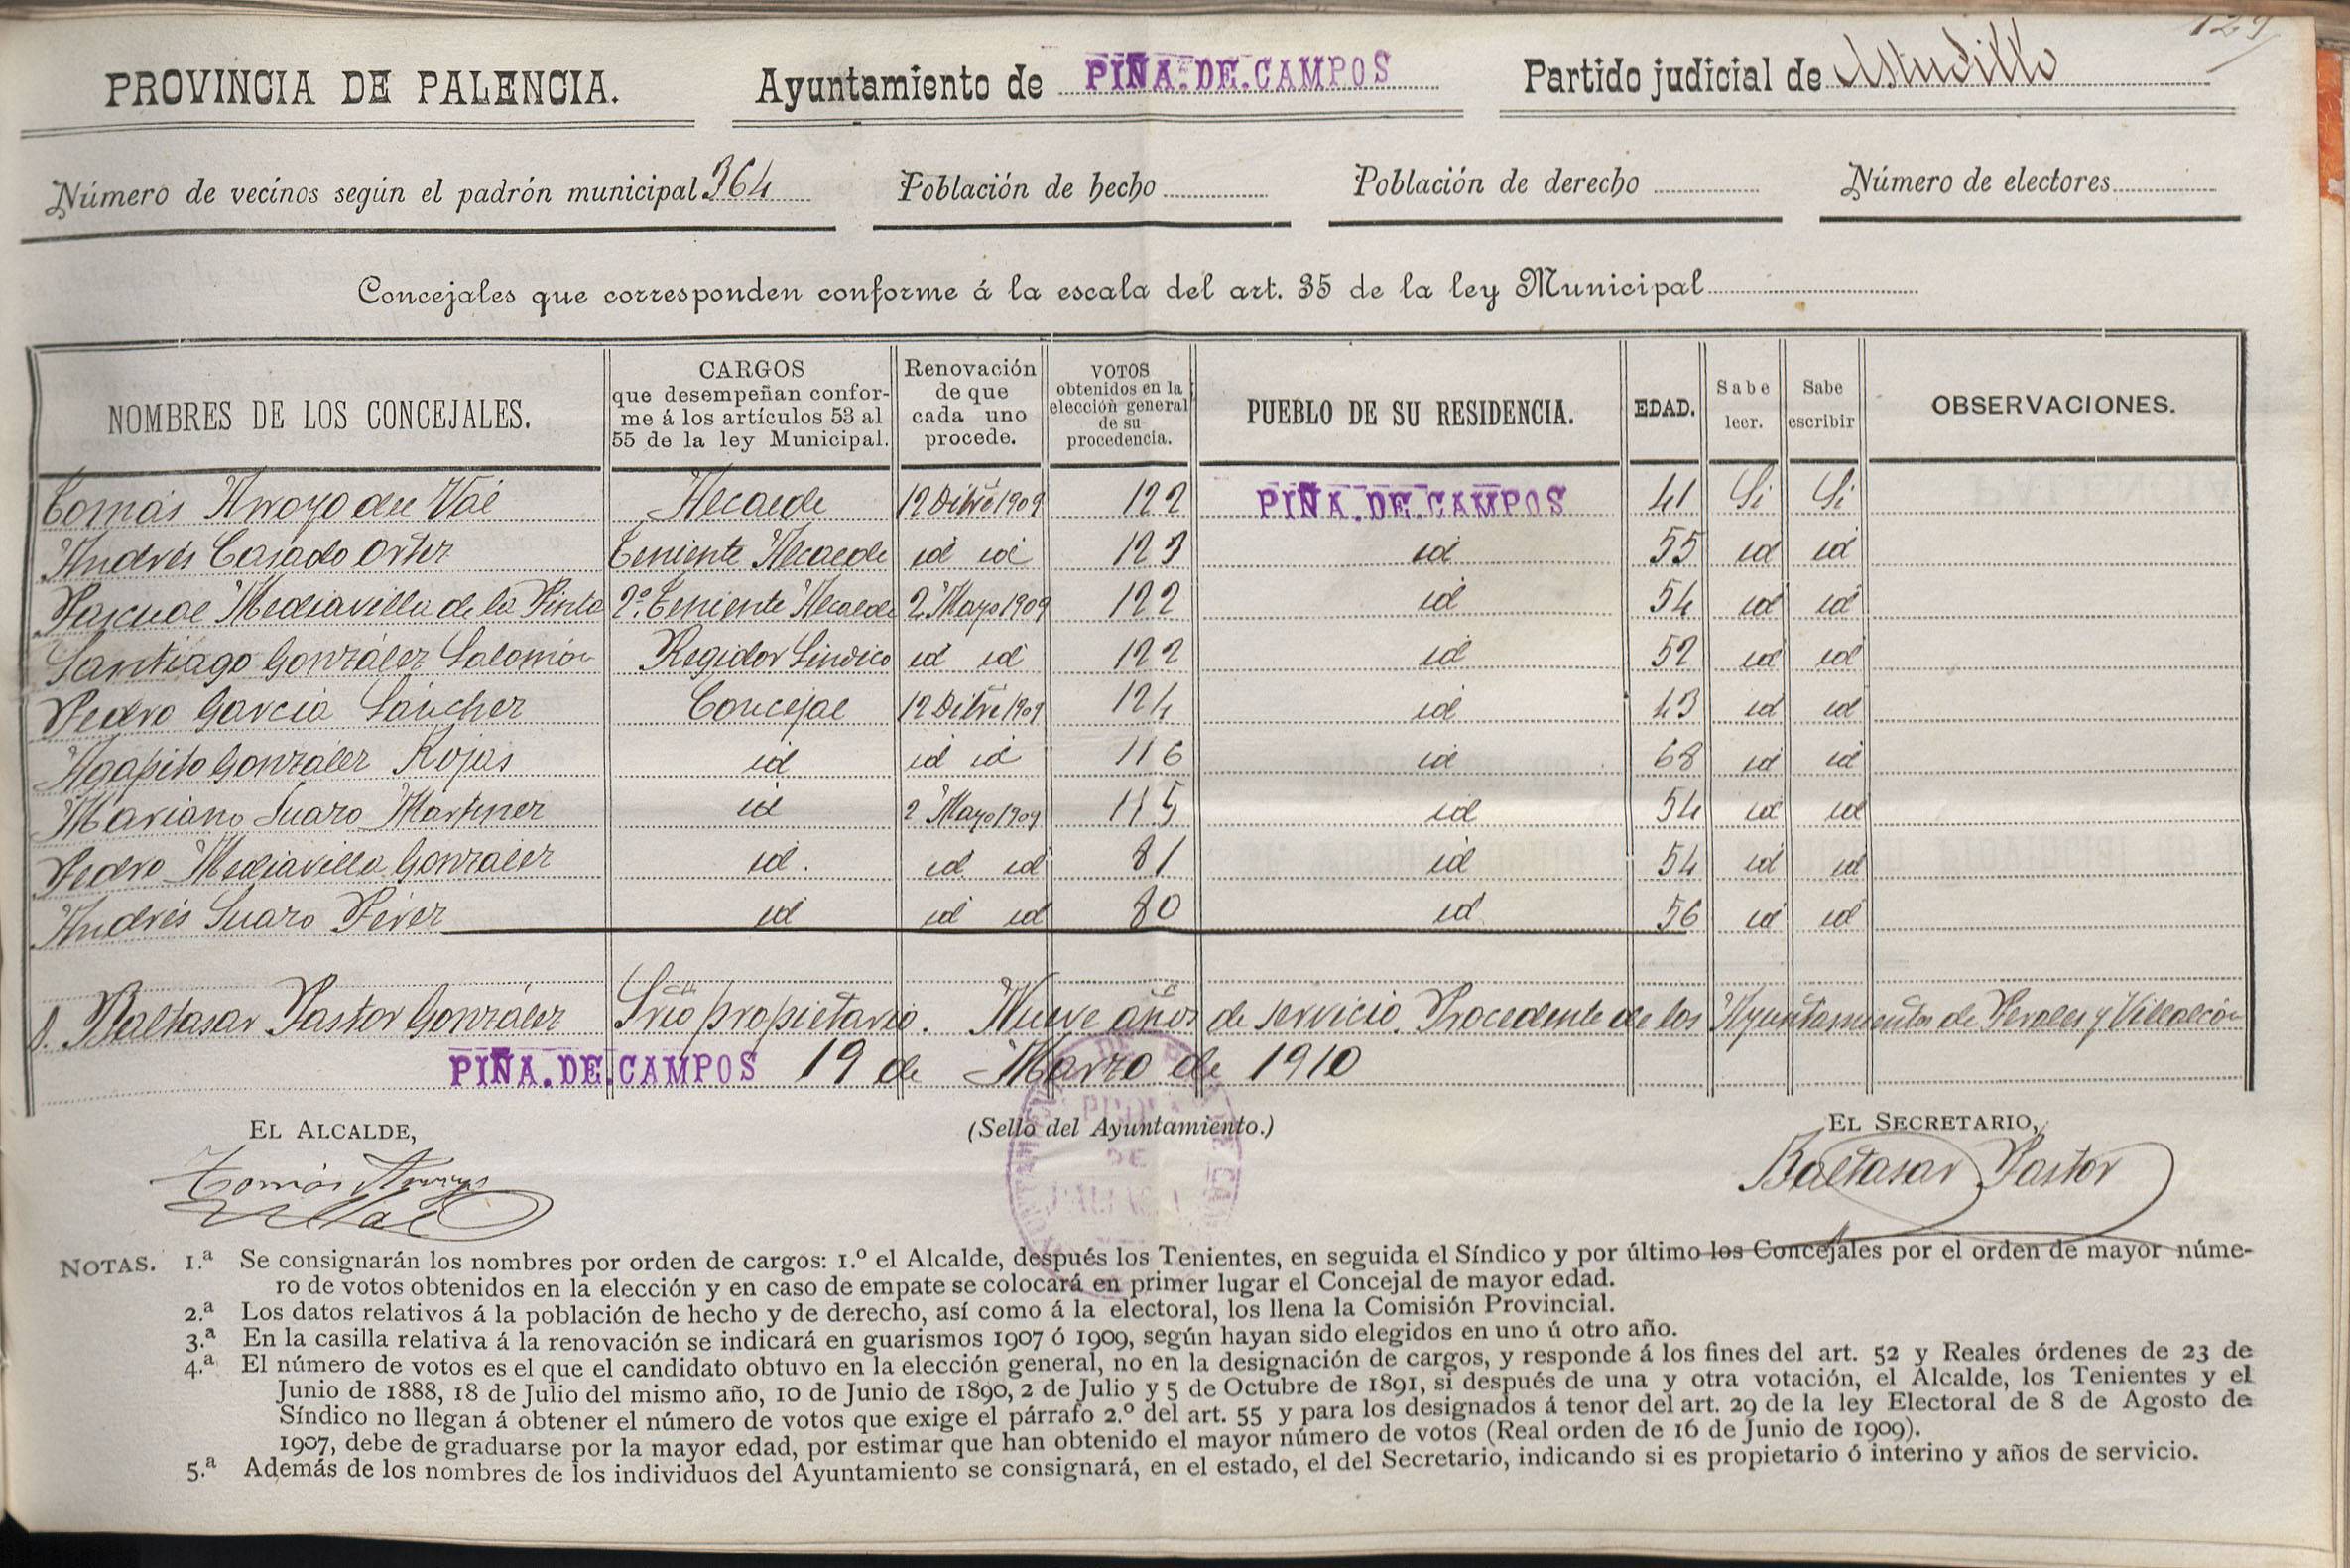 129
PROVINCIA DE PALENCIA. Ayuntamiento de PIÑA.DE.CAMPOS Partido judicial de Astudillo
Número de vecinos según el padrón municipal 364 Población de hecho Población de derecho Número de electores
Concejales que corresponden conforme á la escala del art. 35 de la ley Municipal
NOMBRES DE LOS CONCEJALES. CARGOS que desempeñan conforme á los artículos 53 al 55 de la ley Municipal. Renovación de que cada uno procede. VOTOS obtenidos en la elección general de su procedencia. PUEBLO DE SU RESIDENCIA. EDAD. Sabe leer. Sabe escribir OBSERVACIONES.
Tomás Arroyo del Val Alcalde 12 Dibre 1909 122 PIÑA.DE.CAMPOS 41 Si Si
Andrés Casado Ortez Teniente Alcalde id id 123 id 55 id id
Pascual Mediavilla de la Pinta 2º Teniente Alcalde 2 Mayo 1909 122 id 54 id id
Santiago González Salomón Regidor Síndico id id 122 id 52 id id
Pedro García Sánchez Concejal 12 Dibre 1909 124 id 43 id id
Agapito González Rojas id id id 116 id 68 id id
Mariano Suazo Martínez id 2 Mayo 1909 115 id 54 id id
Pedro Mediavilla González id. id id 81 id 54 id id
Andrés Suazo Pérez id id id 80 id 56 id id
D. Baltasar Pastor González Srio propietario. Nueve años de servicio. Procedente de los Ayuntamientos de Perales y Villalcón
PIÑA.DE.CAMPOS 19 de Marzo de 1910
EL ALCALDE, (Sello del Ayuntamiento.) EL SECRETARIO,
Tomás Arroyo Baltasar Pastor
NOTAS. 1.ª Se consignarán los nombres por orden de cargos: 1.º el Alcalde, después los Tenientes, en seguida el Síndico y por último los Concejales por el orden de mayor núme-
ro de votos obtenidos en la elección y en caso de empate se colocará en primer lugar el Concejal de mayor edad.
2.ª Los datos relativos á la población de hecho y de derecho, así como á la electoral, los llena la Comisión Provincial.
3.ª En la casilla relativa á la renovación se indicará en guarismos 1907 ó 1909, según hayan sido elegidos en uno ú otro año.
4.ª El número de votos es el que el candidato obtuvo en la elección general, no en la designación de cargos, y responde á los fines del art. 52 y Reales órdenes de 23 de
Junio de 1888, 18 de Julio del mismo año, 10 de Junio de 1890, 2 de Julio y 5 de Octubre de 1891, si después de una y otra votación, el Alcalde, los Tenientes y el
Síndico no llegan á obtener el número de votos que exige el párrafo 2.º del art. 55 y para los designados á tenor del art. 29 de la ley Electoral de 8 de Agosto de
1907, debe de graduarse por la mayor edad, por estimar que han obtenido el mayor número de votos (Real orden de 16 de Junio de 1909).
5.ª Además de los nombres de los individuos del Ayuntamiento se consignará, en el estado, el del Secretario, indicando si es propietario ó interino y años de servicio.